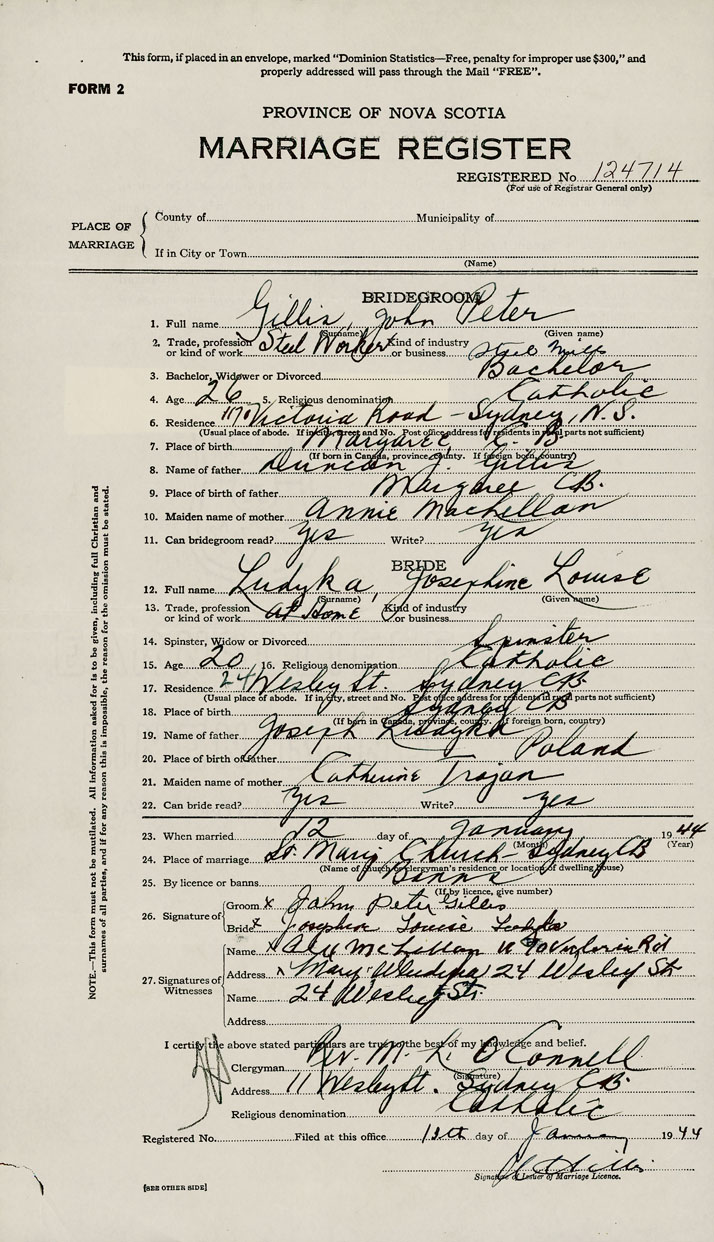 This form, if placed in an envelope, marked "Dominion Statistics—Free, penalty for improper use $300," and
properly addressed will pass through the Mail "FREE".
FORM 2
PROVINCE OF NOVA SCOTIA
MARRIAGE REGISTER
REGISTERED No. 124714
(For use of Registrar General only)
PLACE OF MARRIAGE
County of Municipality of
If in City or Town
(Name)
BRIDEGROOM
1. Full name Gillis, John Peter
(Surname) (Given name)
2. Trade, profession or kind of work Steel Worker Kind of industry or business Steel Mill
3. Bachelor, Widower or Divorced Bachelor
4. Age 26 5. Religious denomination Catholic
6. Residence 1170 Victoria Road - Sydney, N.S.
(Usual place of abode. If in city, street and No. Post office address for residents in rural parts not sufficient)
7. Place of birth Margaree C.B.
(If born in Canada, province, county. If foreign born, country)
8. Name of father Duncan J. Gillis
9. Place of birth of father Margaree C.B.
10. Maiden name of mother Annie MacLellan
11. Can bridegroom read? Yes Write? Yes
BRIDE
12. Full name Ludyka, Josephine Louise
(Surname) (Given name)
13. Trade, profession or kind of work At Home Kind of industry or business
14. Spinster, Widow or Divorced Spinster
15. Age 20 16. Religious denomination Catholic
17. Residence 24 Wesley St. Sydney C.B.
(Usual place of abode. If in city, street and No. Post office address for residents in rural parts not sufficient)
18. Place of birth Sydney C.B.
(If born in Canada, province, county. If foreign born, country)
19. Name of father Joseph Ludyka
20. Place of birth of father Poland
21. Maiden name of mother Catherine Trojan
22. Can bride read? Yes Write? Yes
23. When married 12 day of January 1944
(Month) (Year)
24. Place of marriage St. Mary Church - Sydney CB
(Name of church or clergyman's residence or location of dwelling house)
25. By licence or banns Banns
(If by licence, give number)
26. Signature of
Groom x John Peter Gillis
Bride x Josephine Louise Ludyka
27. Signatures of Witnesses
Name x Alex McLellan Victoria Rd
Address x Mary 24 Wesley St.
Name 24 Wesley St.
Address
I certify the above stated particulars are true to the best of my knowledge and belief.
Clergyman Rev. M. L. O'Connell
(Signature)
Address 11 Wesley St. Sydney C.B.
Religious denomination Catholic
Registered No. Filed at this office 13th day of January 1944
Signature of Issuer of Marriage Licence.
[SEE OTHER SIDE]
NOTE.—This form must not be mutilated. All information asked for is to be given, including full Christian and
surnames of all parties, and if for any reason this is impossible, the reason for the omission must be stated.